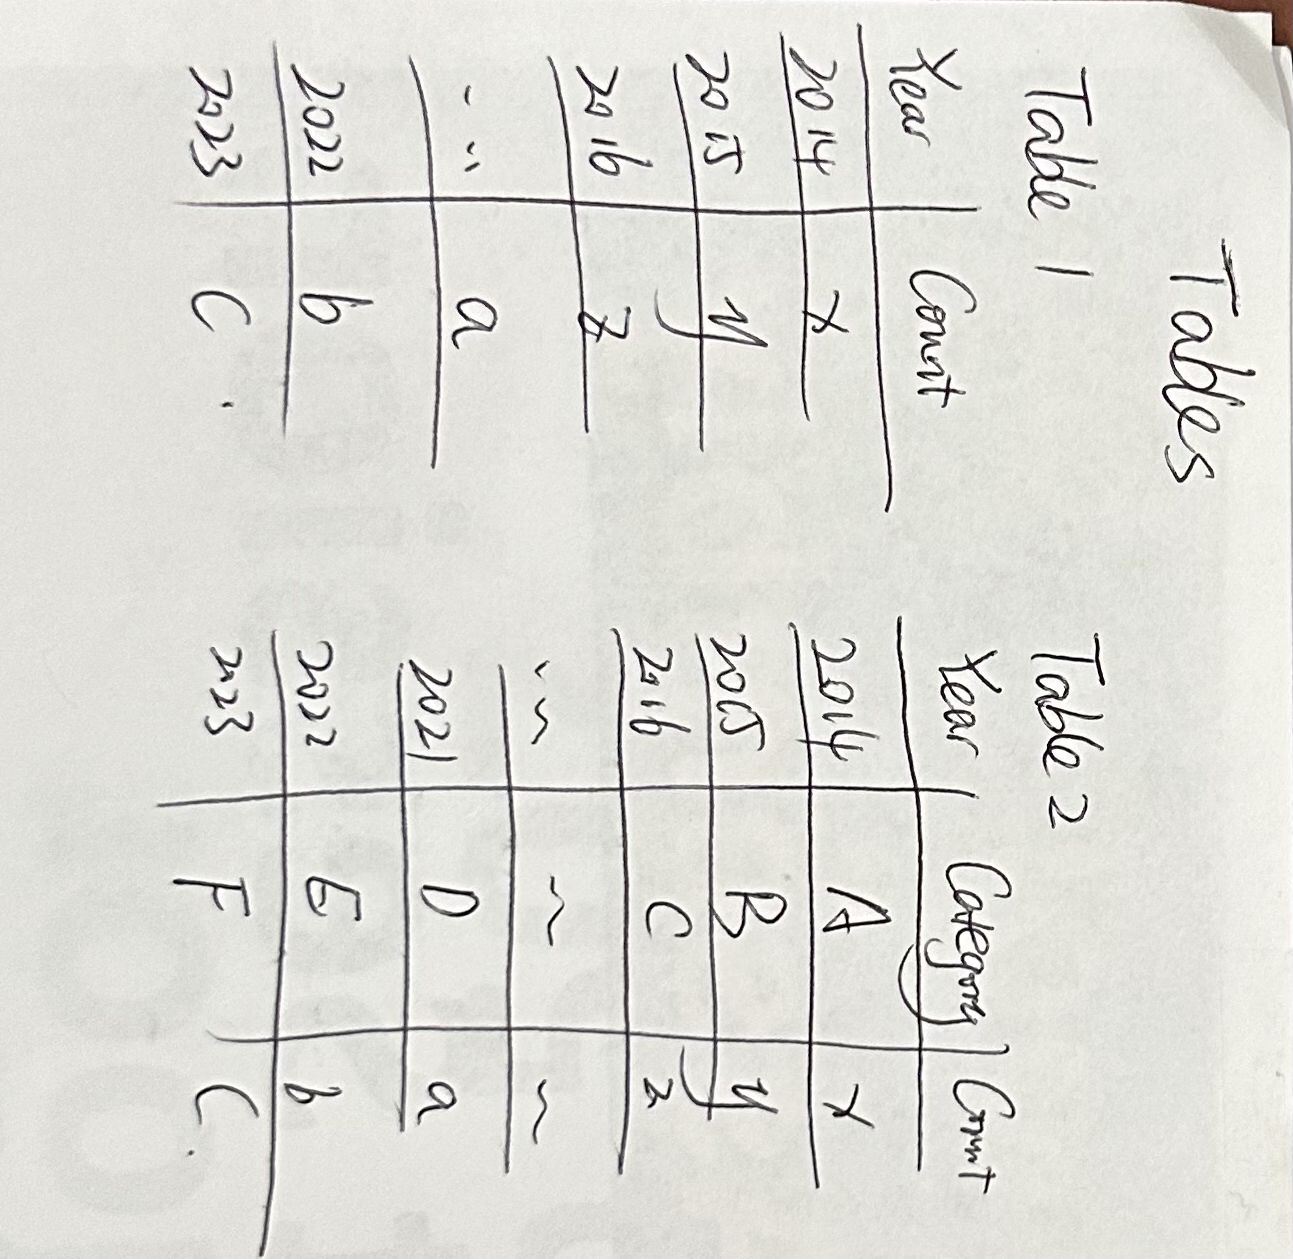 Tables
Table 1
Year Count
2014 x
2015 y
2016 z
... a
2022 b
2023 C
Table 2
Year Category Count
2014 A x
2015 B y
2016 C z
... ~ ~
2021 D a
2022 E b
2023 F C